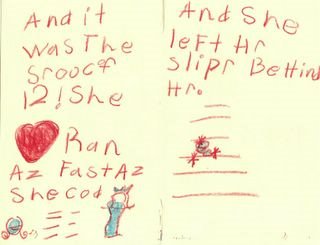 And it
was The
srooc of
12! She
Ran
Az Fast Az
She cod
And She
left Hr
slipr Bettind
Hr.